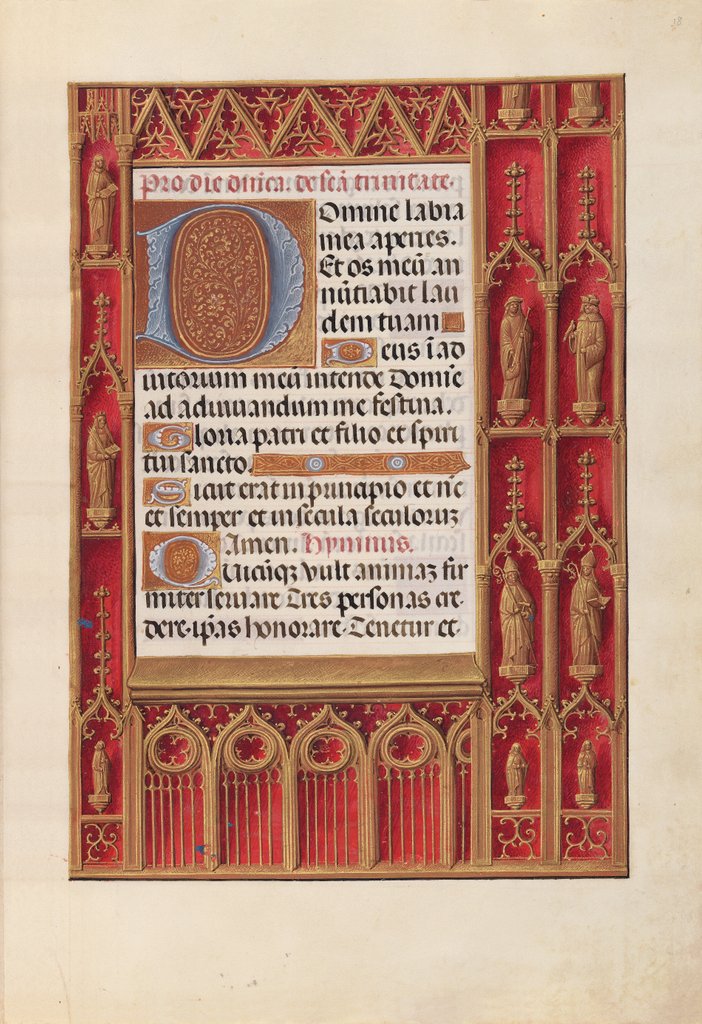 18
Pro die dn̄ica. de scā trinitate.
Domine labia
mea aperies.
Et os meū an
nūtiabit lau
dem tuam
Deus ī ad
iutorium meū intende Domīe
ad adiuuandum me festina.
Gloria patri et filio et spiri
tui sancto.
Sicut erat in principio et nc̄
et semper et in secula seculoruꝫ
Amen. Hymnus.
Quicūqꝫ vult animaꝫ fir
miter seruare Tres personas cre
dere· ip̄as honorare· Tenetur et·